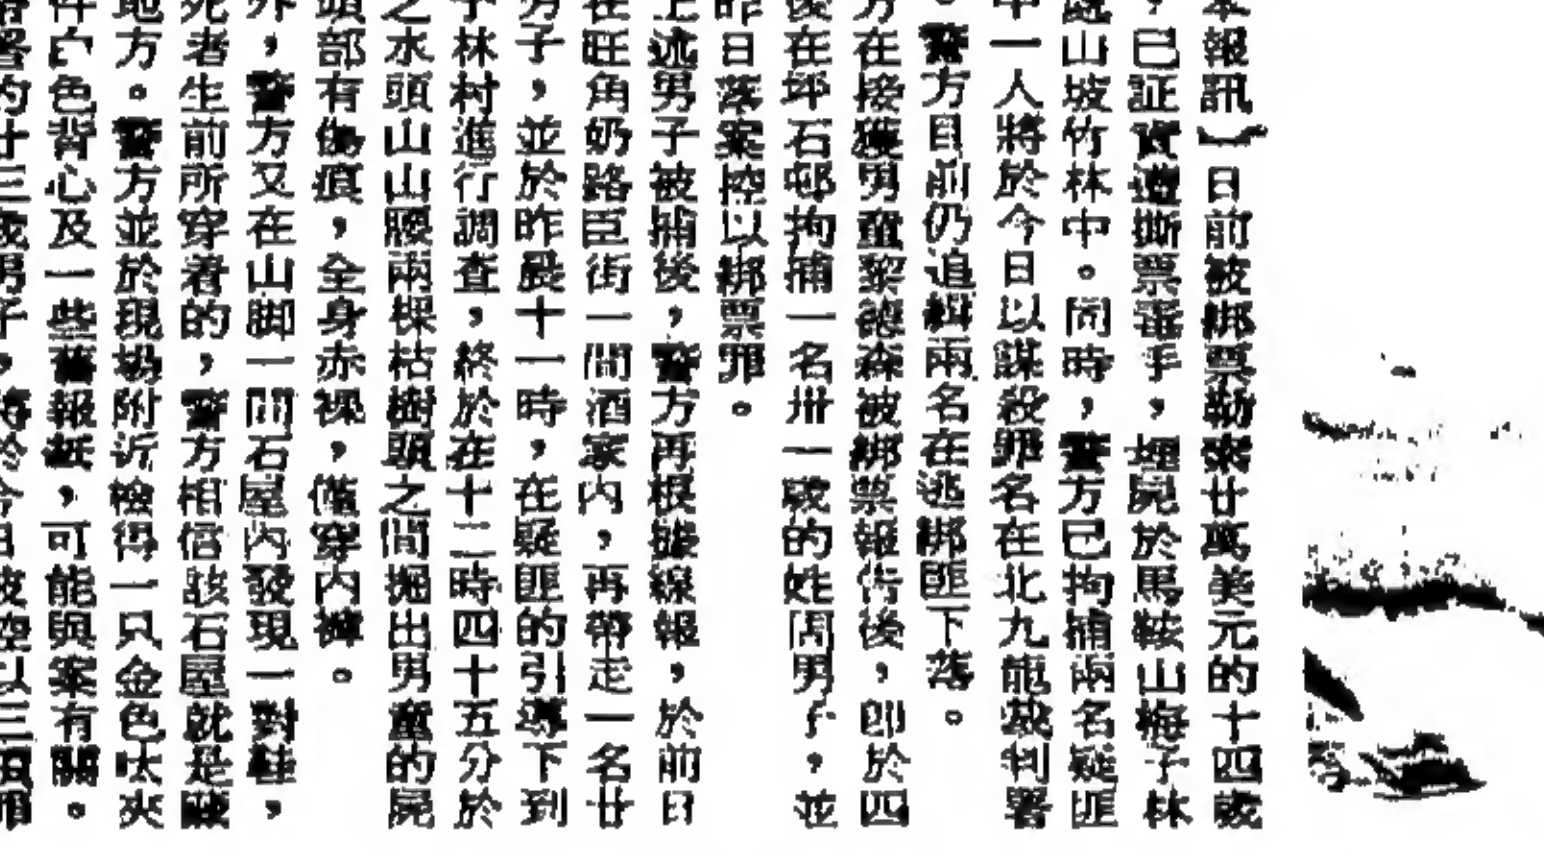 本報訊】日前被綁票勒索廿萬美元的十四歲
，已証實遭撕票毒手，埋屍於馬鞍山梅子林
處山坡竹林中。同時，警方已拘捕兩名疑匪
中一人將於今日以謀殺罪名在北九龍裁判署
。警方目前仍追緝兩名在逃綁匪下落。
方在接獲男童黎德森被綁票報告後，即於四
後在坪石邨拘捕一名卅一歲的姓周男子，並
昨日落案控以綁票罪。
上述男子被捕後，警方再根據線報，於前日
在旺角奶路臣街一間酒家内，再帶走一名廿
男子，並於昨晨十一時，在疑匪的引導下到
子林村進行調查，終於在十二時四十五分於
之水頭山山腰兩棵枯樹頭之間掘出男童的屍
頭部有傷痕，全身赤裸，僅穿内褲。
外，警方又在山脚一間石屋内發現一對鞋，
死者生前所穿着的，警方相信該石屋就是藏
地方。警方並於現場附近檢得一只金色呔夾
件白色背心及一些舊報紙，可能與案有關。
的廿三歲男子，將於今日被控以三項罪